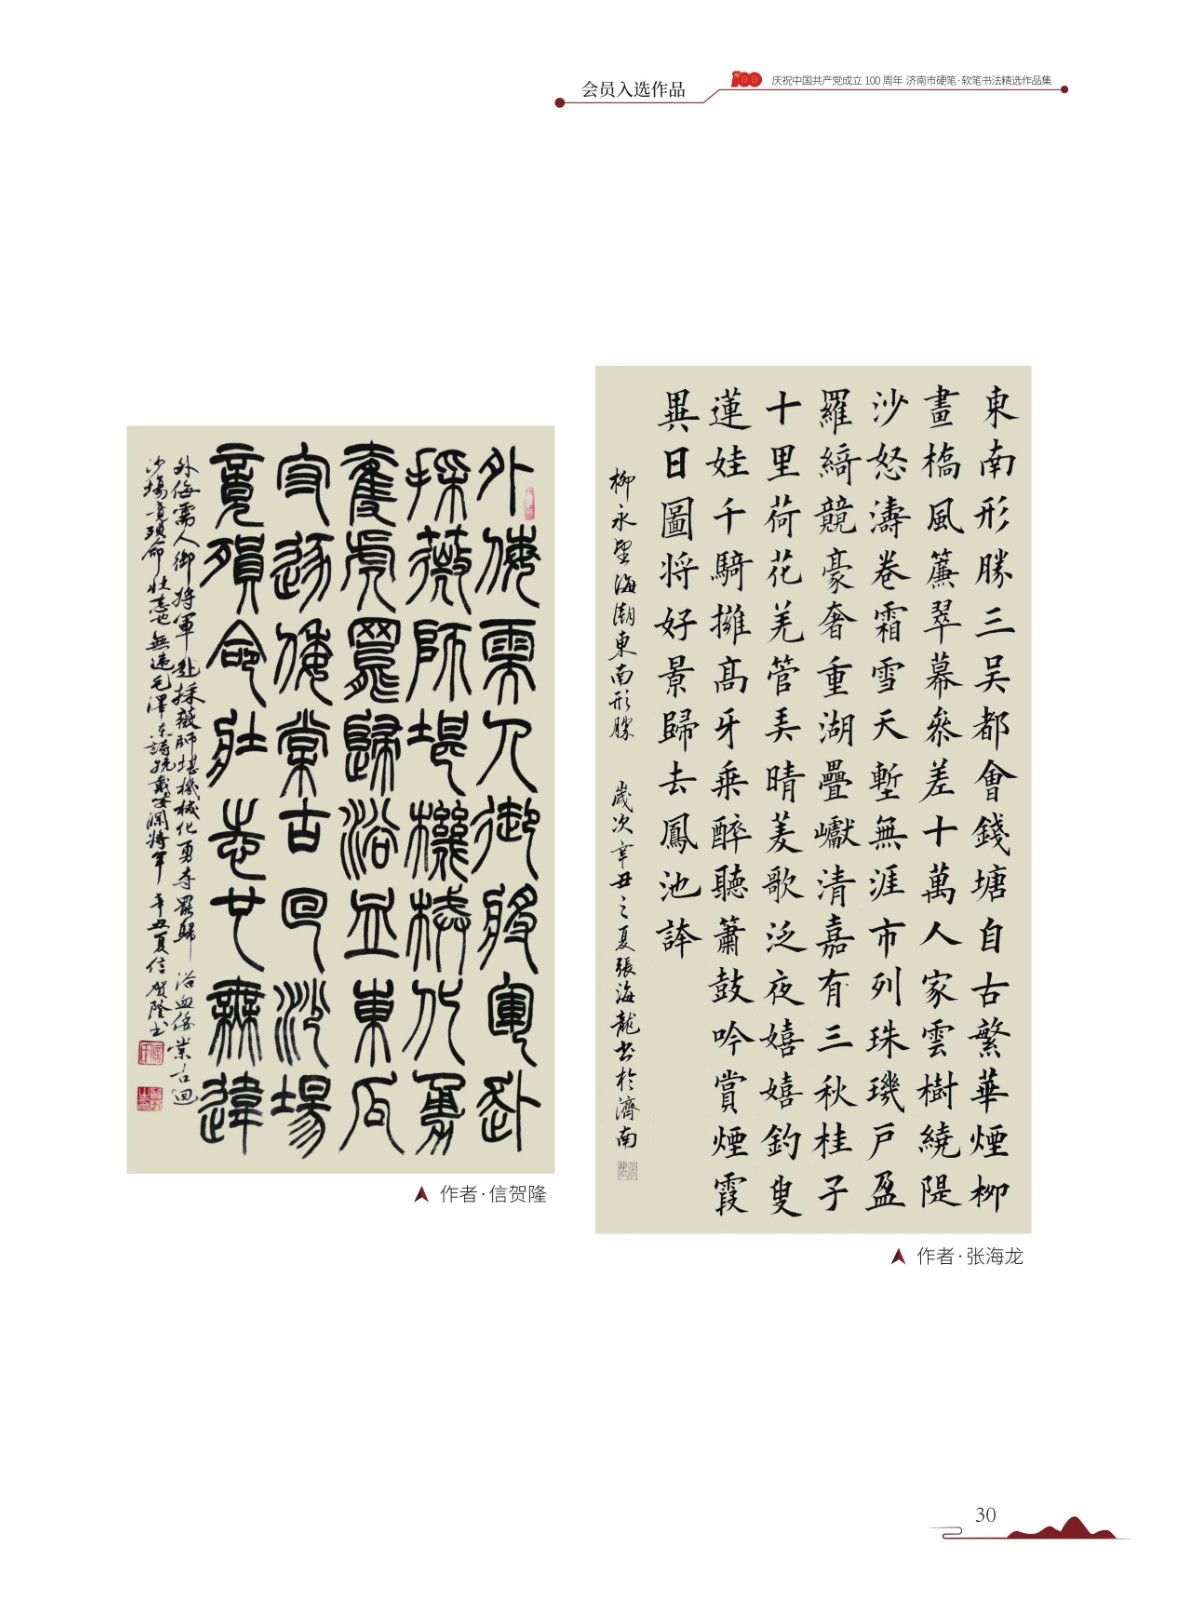 会员入选作品
庆祝中国共产党成立 100 周年 济南市硬笔·软笔书法精选作品集
東南形勝三吴都會錢塘自古繁華煙柳
畫橋風簾翠幕叅差十萬人家雲樹繞隄
沙怒濤卷霜雪天塹無涯市列珠璣戸盈
羅綺競豪奢重湖疊巘清嘉有三秋桂子
十里荷花羌管弄晴菱歌泛夜嬉嬉釣叟
蓮娃千騎擁高牙乘醉聽簫鼓吟賞煙霞
異日圖将好景歸去鳳池誇
柳永望海潮東南形勝 歲次辛丑之夏張海龍书於濟南
作者·张海龙
外侮需人御將軍赴
採薇師堪機械化勇
奪虎羆歸浴血東瓜
守逐倭棠吉回沙場
竟殞命壯志也無違
外侮需人御將軍赴採薇師堪機械化勇奪羆歸浴血倭棠吉回
沙場竟殞命壯志也無違毛澤東詩挽戴安瀾將軍 辛丑夏信賀隆书
作者·信贺隆
30